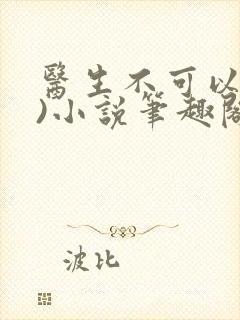 醫生不可以
)小說筆趣閣
波比